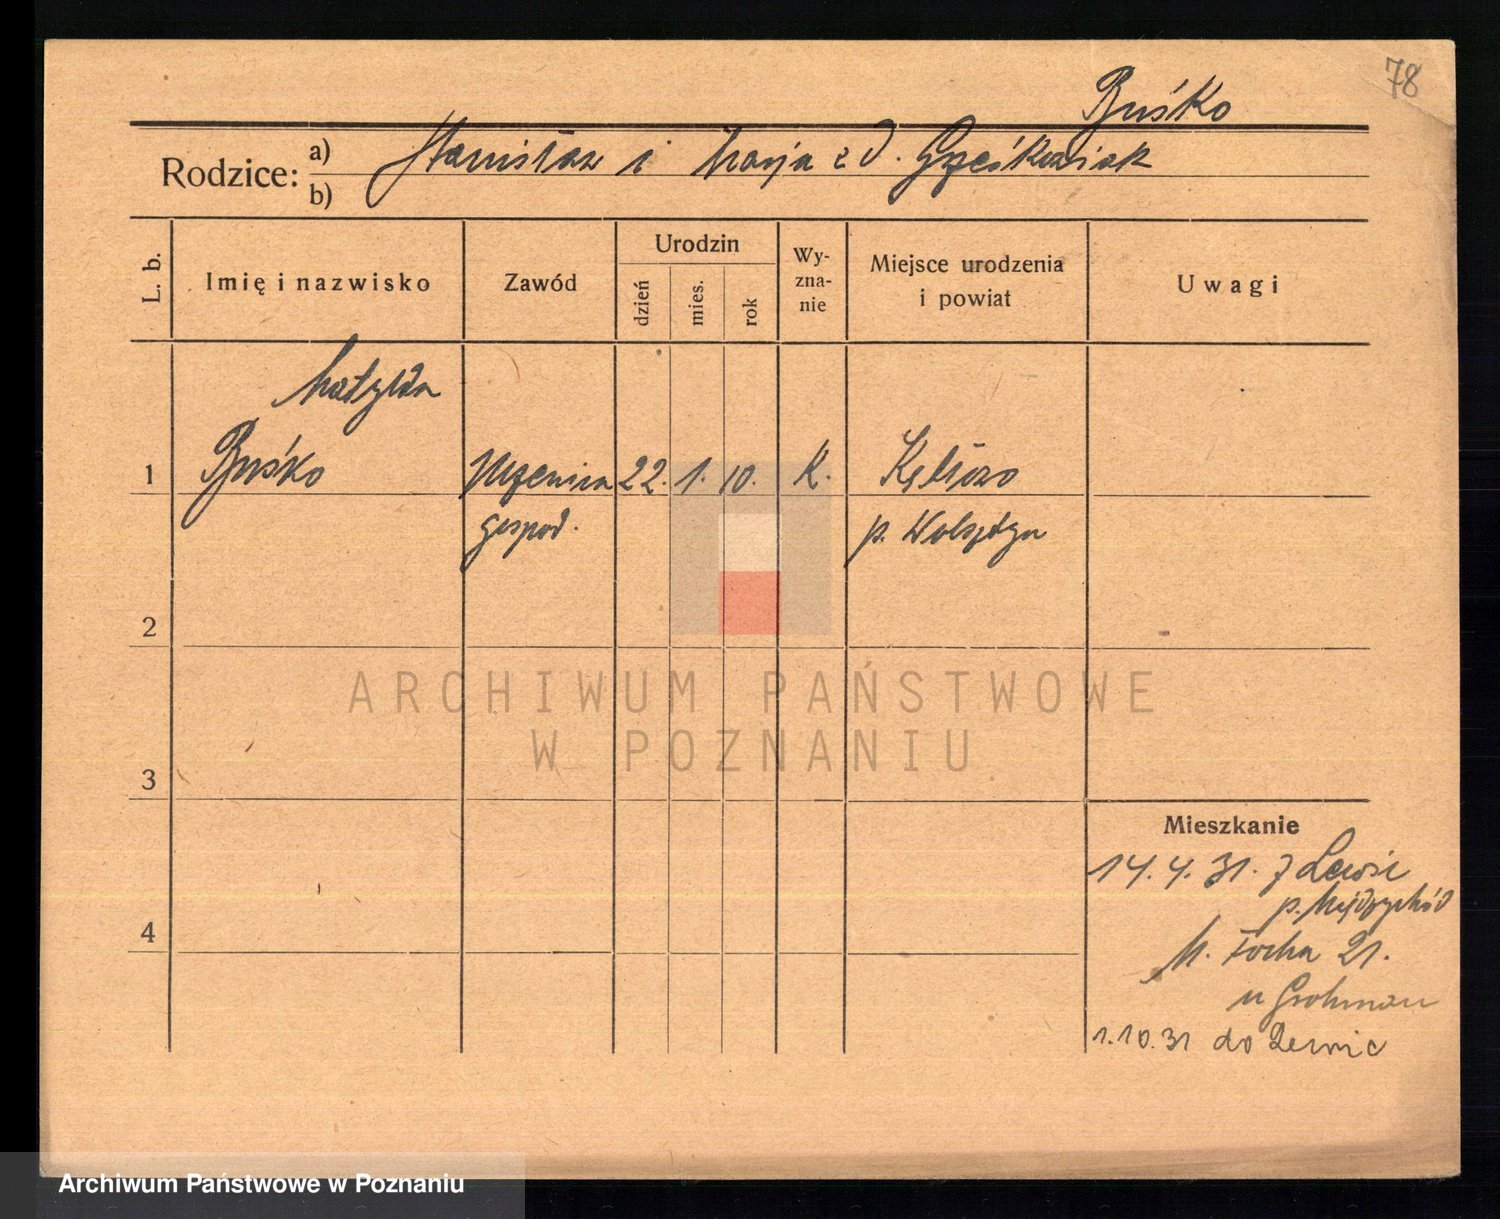 78
Buśko
Rodzice: a) Stanisław i Marja z d. Grześkowiak
b)
L. b.
Imię i nazwisko
Zawód
Urodzin
dzień
mies.
rok
Wy-
zna-
nie
Miejsce urodzenia
i powiat
Uwagi
Matylda
1 Buśko Uczenica 22. 1. 10. k.
gospod. p. Wolsztyn
2
ARCHIWUM PAŃSTWOWE
W POZNANIU
3
Mieszkanie
14.4.31. z Lewic
p. Międzychód
4
M. Focha 21.
u Grohman
1.10.31 do Lewic
Archiwum Państwowe w Poznaniu